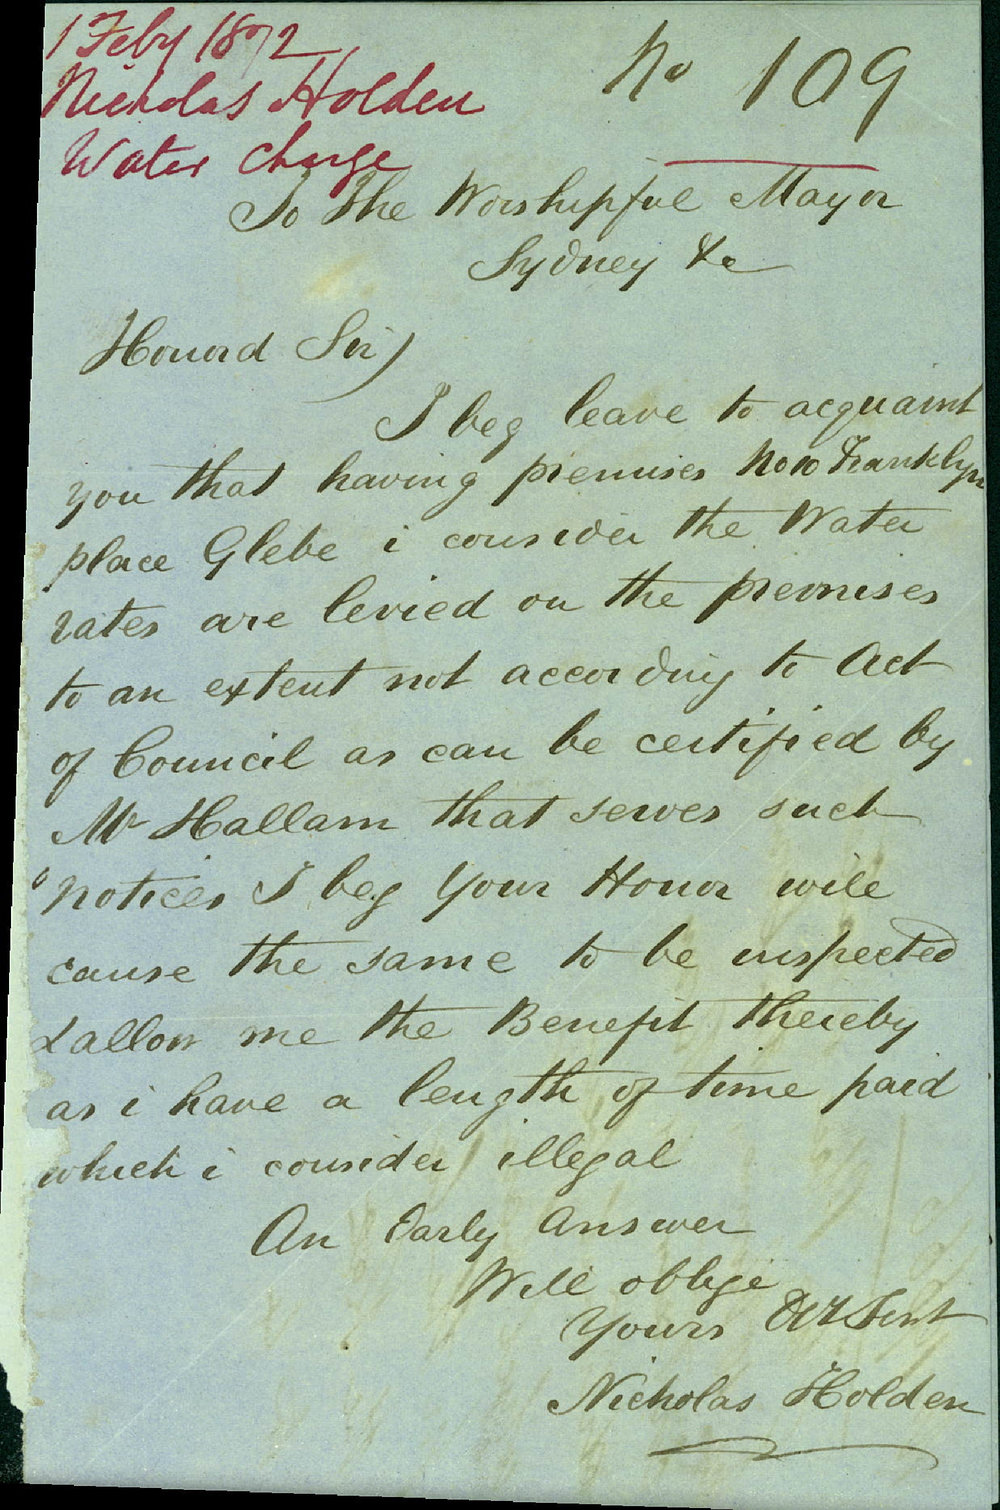 1 Feby 1872
Nicholas Holden
Water Charge
No 109
To The Worshipful Mayor
Sydney &c
Honord Sir)
I beg leave to acquaint
you that having premises No 10 Franklyn
place Glebe i consider the Water
rates are levied on the premises
to an extent not according to Act
of Council as can be certified by
Mr Hallam that serves such
notices I beg Your Honor will
cause the same to be inspected
& allow me the Benefit thereby
as i have a length of time paid
which i consider illegal
An Early Answer
Will oblige
Yours
Nicholas Holden